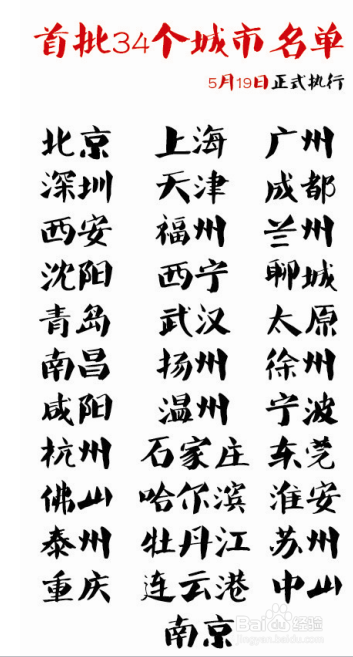 首批34个城市名单
5月19日正式执行
北京 上海 广州
深圳 天津 成都
西安 福州 兰州
沈阳 西宁 聊城
青岛 武汉 太原
南昌 扬州 徐州
咸阳 温州 宁波
杭州 石家庄 东莞
佛山 哈尔滨 淮安
泰州 牡丹江 苏州
重庆 连云港 中山
南京
Baidu 经验
jingyan.baidu.com